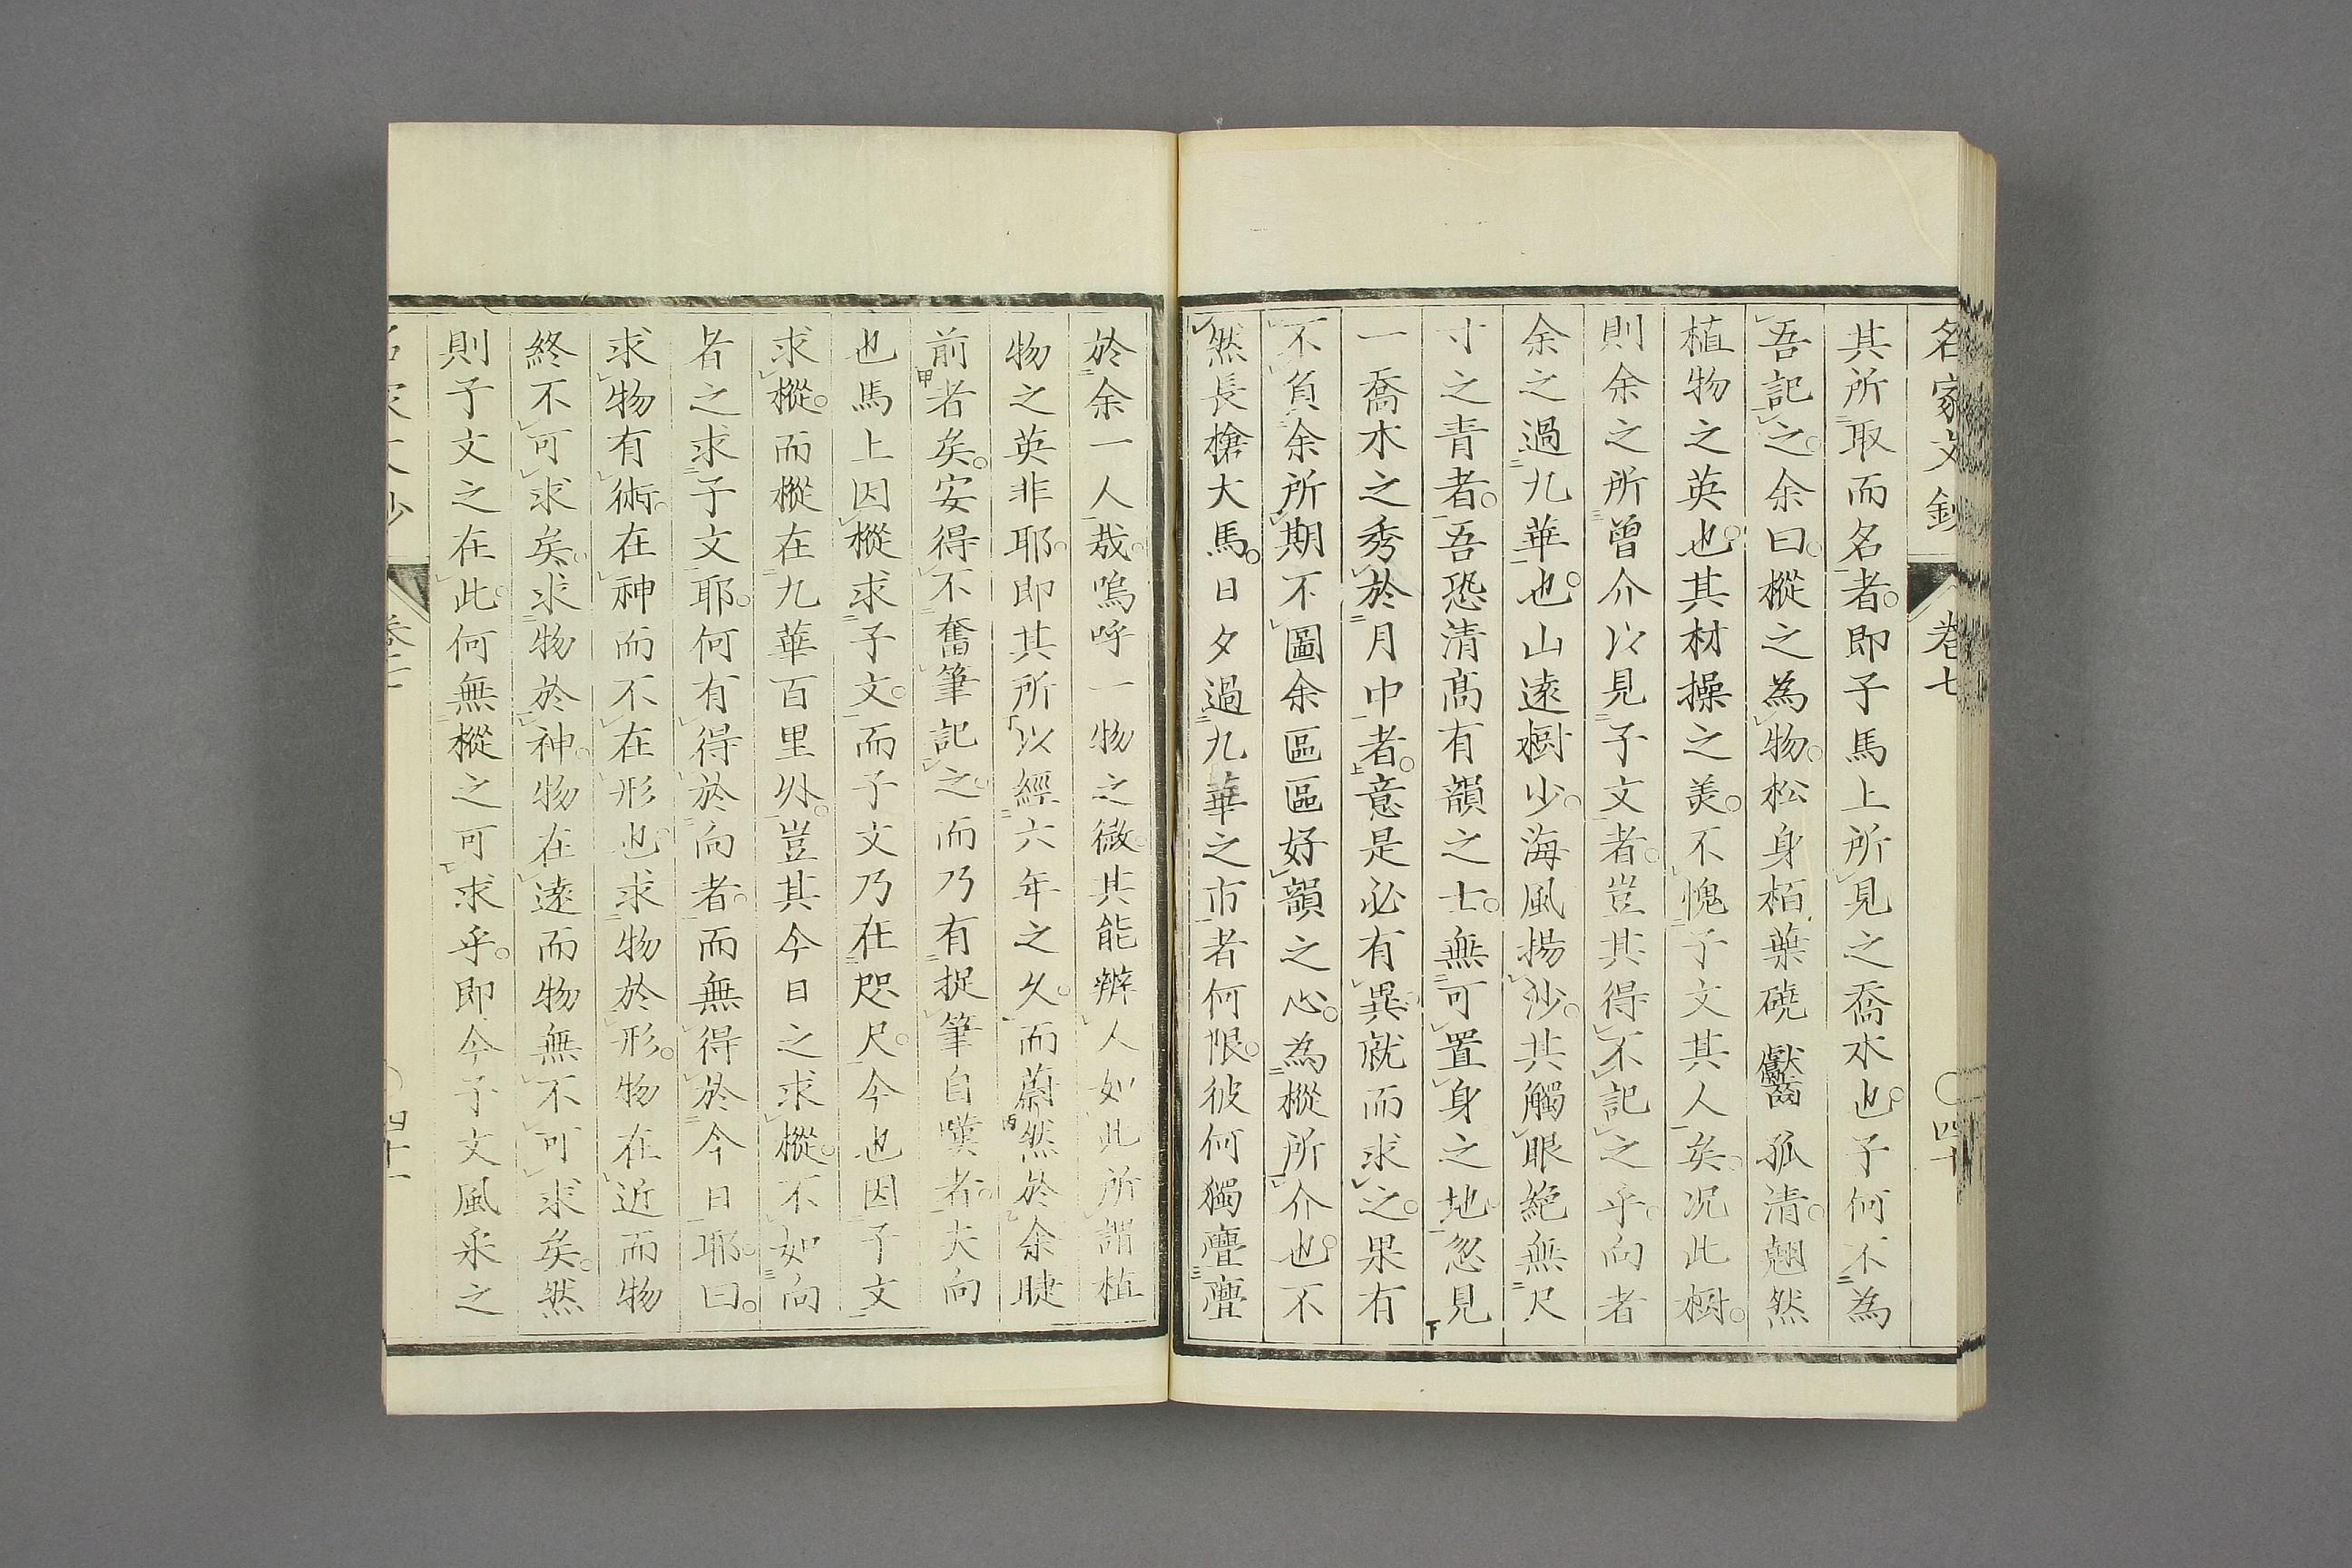 名家文鈔 卷七 〇四十
其所取而名者即子馬上所見之喬木也子何不為
吾記之余曰樅之為物松身栢葉磽 巘 孤清翹然
植物之英也其材操之美不愧子文其人矣況此樹
則余之所曾介以見子文者豈其得不記之乎向者
余之過九華也山遠樹少海風揚沙其觸眼絕無尺
寸之青者吾恐清高有韻之士無可置身之地忽見
一喬木之秀於月中者意是必有異就而求之果有
不負余所期不圖余區區好韻之心為樅所介也不
然長槍大馬日夕過九華之市者何限彼何獨亹亹
於余一人哉嗚呼一物之微其能辨人如此所謂植
物之英非耶即其所以經六年之久而蔚然於余睫
前者矣安得不奮筆記之而乃有捉筆自嘆者夫向
也馬上因樅求子文而子文乃在咫尺今也因子文
求樅而樅在九華百里外豈其今日之求樅不如向
者之求子文耶何有得於向者而無得於今日耶曰
求物有術在神而不在形也求物於形物在近而物
終不可求矣求物於神物在遠而物無不可求矣然
則子文之在此何無樅之可求乎即今子文風采之
名家文鈔 卷七 〇四十一